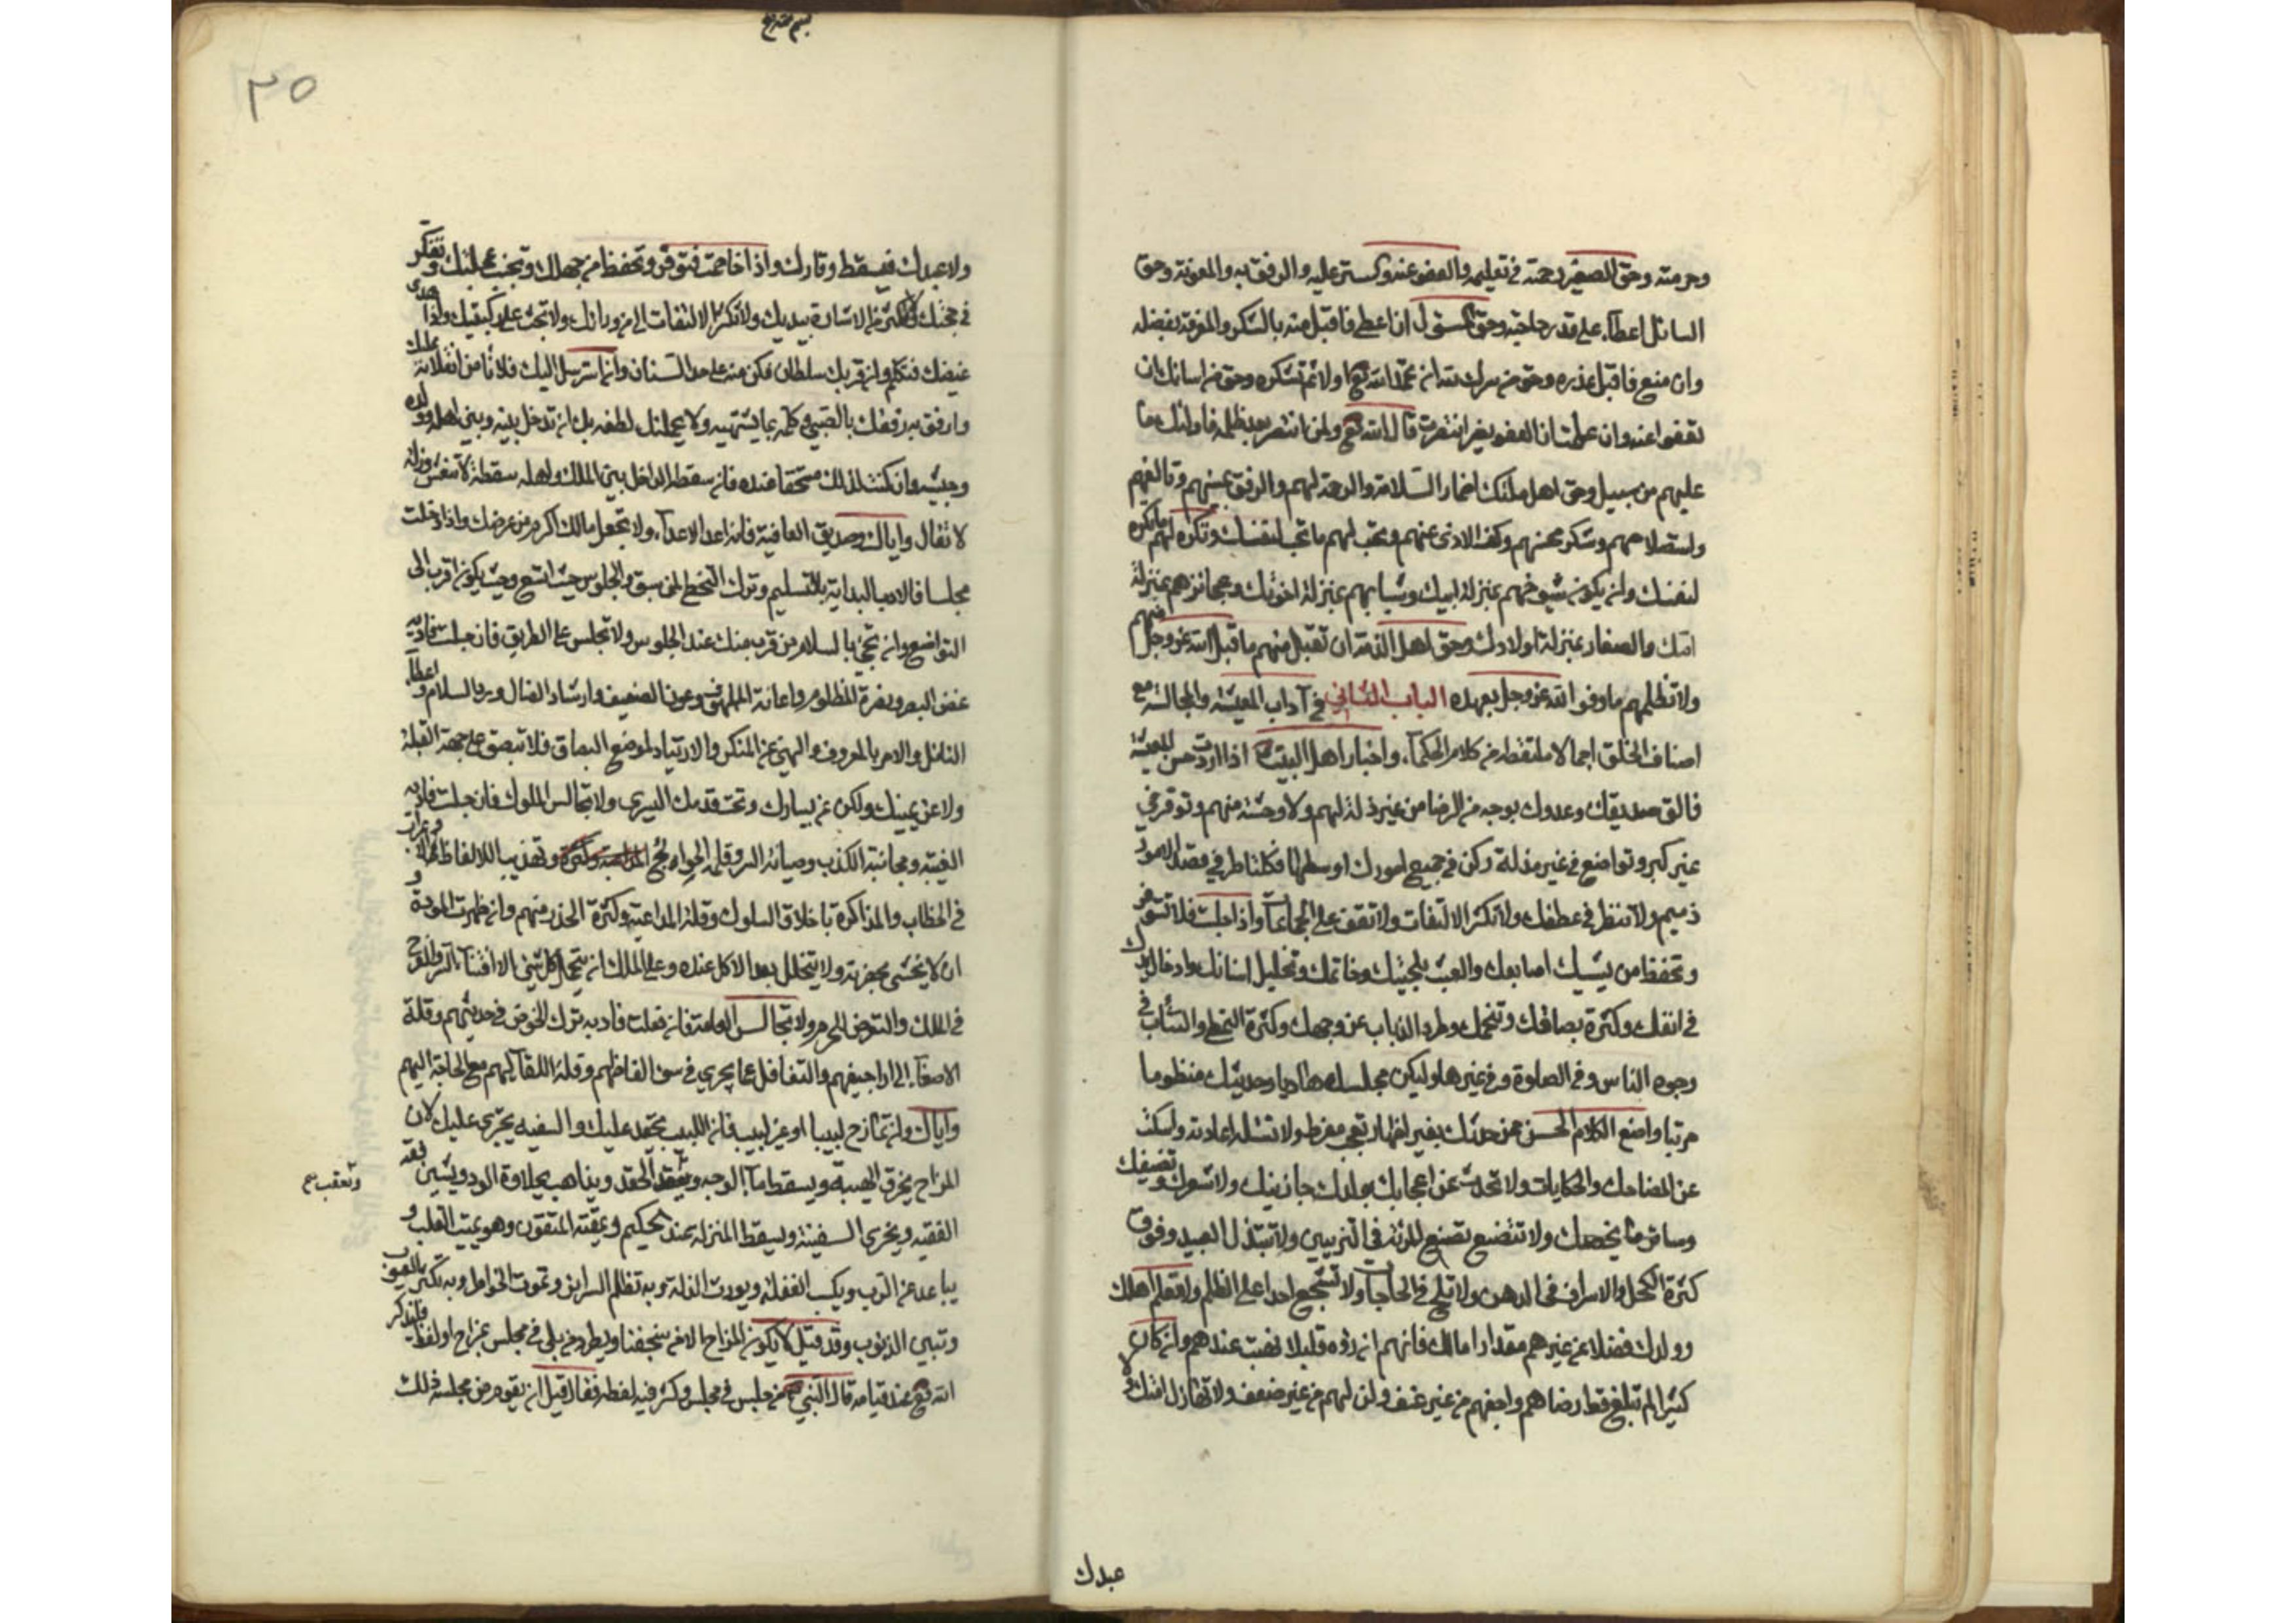 وحرمته وحق الصغير رحمته في تعليمه والعفو عنه والستر عليه والرفق به والمعونة وحق
السائل اعطاءه على قدر حاجته وحق المسئول ان اعطى فاقبل منه بالشكر والمعرفة بفضله
وان منع فاقبل عذره وحق من سرك لله ان تحمد الله تع اولا ثم تشكره وحق من اسائك ان
تعفوا عنه وان علمت ان العفو يضر انتصرت قال الله تع ولمن انتصر بعد ظلمه فاولئك ما
عليهم من سبيل وحق اهل ملتك اضمار السلامة والرحمة لهم والرفق بمسيئهم وتالفهم
واستصلاحهم وشكر محسنهم وكف الاذى عنهم وتحب لهم ما تحب لنفسك وتكره لهم ما تكره
لنفسك وان يكون شيوخهم بمنزلة ابيك وشبابهم بمنزلة اخوتك وعجائزهم بمنزلة
امك والصغار بمنزلة اولادك وحق اهل الذمة ان تقبل منهم ما قبل الله عز وجل منهم
ولا تظلمهم ما وفوا الله عز وجل بعهده الباب الثاني في آداب المعيشة والمجالسة مع
اصناف الخلق اجمالا ملتقط من كلام الحكماء واخبار اهل البيت اذا اردت حسن المعيشة
فالق صديقك وعدوك بوجه من الرضا من غير ذلة لهم ولا وحشة منهم وتوقر في
غير كبر وتواضع في غير مذلة وكن في جميع امورك اوسطها فكلا طرفي قصد الامور
ذميم ولا تنظر في عطفك ولا تكثر الالتفات ولا تقف على الجماعات واذا جلست فلا تستوفز
وتحفظ من تشبيك اصابعك والعبث بلحيتك وخاتمك وتخليل اسنانك وادخال يدك
في انفك وكثرة بصاقك وتنخمك وطرد الذباب عن وجهك وكثرة التمطي والتثأب في
وجوه الناس وفي الصلوة وفي غيرها وليكن مجلسك هاديا وحديثك منظوما
مرتبا واصغ الكلام الحسن ممن حدثك بغير اظهار تعجب مفرط ولا تسئله اعادته واسكت
عن المضاحك والحكايات ولا تحدث عن اعجابك بولدك جاريتك ولا شعرك وتصنيفك
وسائر ما يخصك ولا تتصنع تصنع المرئة في التزيين ولا تتبذل تبذل العبيد وتوق
كثرة الكحل والاسراف في الدهن ولا تلح في الحاجات ولا تشجع احدا على الظلم ولا تعلم اهلك
وولدك فضلا عن غيرهم مقدار مالك فانهم ان رؤه قليلا هنت عندهم وان كان
كثيرا لم تبلغ قط رضاهم واجفهم من غير عنف ولن لهم من غير ضعف ولا تهازل امتك ولا
عبدك
٣٥
ولا عبدك فيسقط وقارك واذا خاصمت فتوقر وتحفظ من جهلك وتجنب عجلتك وتفكر
في حجتك ولا تكثر من الاشارة بيديك ولا تكثر الالتفات الى من ورائك ولا تجث على ركبتيك واذا هدى
غيضك فتكلم وان قربك سلطان فكن منه على حد السنان وان استرسل اليك فلا تامن انقلابه عليك
وارفق به رفقك بالصبي وكلمه بما يشتهيه ولا يحملنك لطفه بك ان تدخل بينه وبين اهله وولده
وحشمه وان كنت لذلك مستحقا عنده فان سقطة الداخل بين الملك واهله سقطة لا تنعش وزلة
لا تقال واياك وصديق العافية فانه اعدى الاعداء ولا تجعل مالك اكرم من عرضك واذا دخلت
مجلسا فالادب البداية بالتسليم وترك التخطي لمن سبق والجلوس حيث اتسع وحيث يكون اقرب الى
التواضع وان تحيي بالسلام من قرب منك عند الجلوس ولا تجلس على الطريق فان جلست فادبه
غض البصر ونصرة المظلوم واعانة الملهوف وعون الضعيف وارشاد الضال ورد السلام واعطاء
السائل والامر بالمعروف والنهي عن المنكر والارتياد لموضع البصاق فلا تبصق على جهة القبلة
ولا عن يمينك ولكن عن يسارك وتحت قدمك اليسرى ولا تجالس الملوك فان جلست فادبه
الغيبة ومجانبة الكذب وصيانة السر وقلة الحوائج وتهذيب الالفاظ
في الخطاب والمذاكرة باخلاق السلوك وقلة المداعبة وكثرة الحذر منهم وان ظهرت المودة و
ان لا تجشى بحضرته ولا يتخلل بعد الاكل عنده وعلى الملك ان يتحمل كل شئ الا افشاء السر والقدح
في الملك والتعرض للحرم ولا تجالس العامة فان فعلت فادبه ترك الخوض في حديثهم وقلة
الاصغاء الى اراجيفهم والتغافل عما يجري في سوء الفاظهم وقلة اللقاء لهم مع الحاجة اليهم
واياك وان تمازح لبيبا او غير لبيب فان اللبيب يحقد عليك والسفيه يجترى عليك لان
المزاح يخرق الهيبة ويسقط ماء الوجه ويعقب الحقد ويذهب بحلاوة الود ويشين فقه
الفقيه ويجرى السفيه ويسقط المنزلة عند الحكيم ويمقته المتقون وهو يميت القلب و
يباعد عن الرب ويكسب الغفلة ويورث الذلة وبه تظلم السرائر وتموت الخواطر وبه تكثر العيوب
وتبين الذنوب وقد قيل لا يكون المزاح الا من سخف او بطر ومن بلي في مجلس بمزاح او لغط فليذكر
الله تع عند قيامه قال النبي من جلس في مجلس وكثر فيه لغطه فقال قبل ان يقوم من مجلسه ذلك